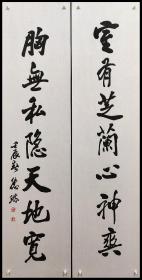 室有芝蘭心神爽
胸無私隐天地寬
壬辰秋